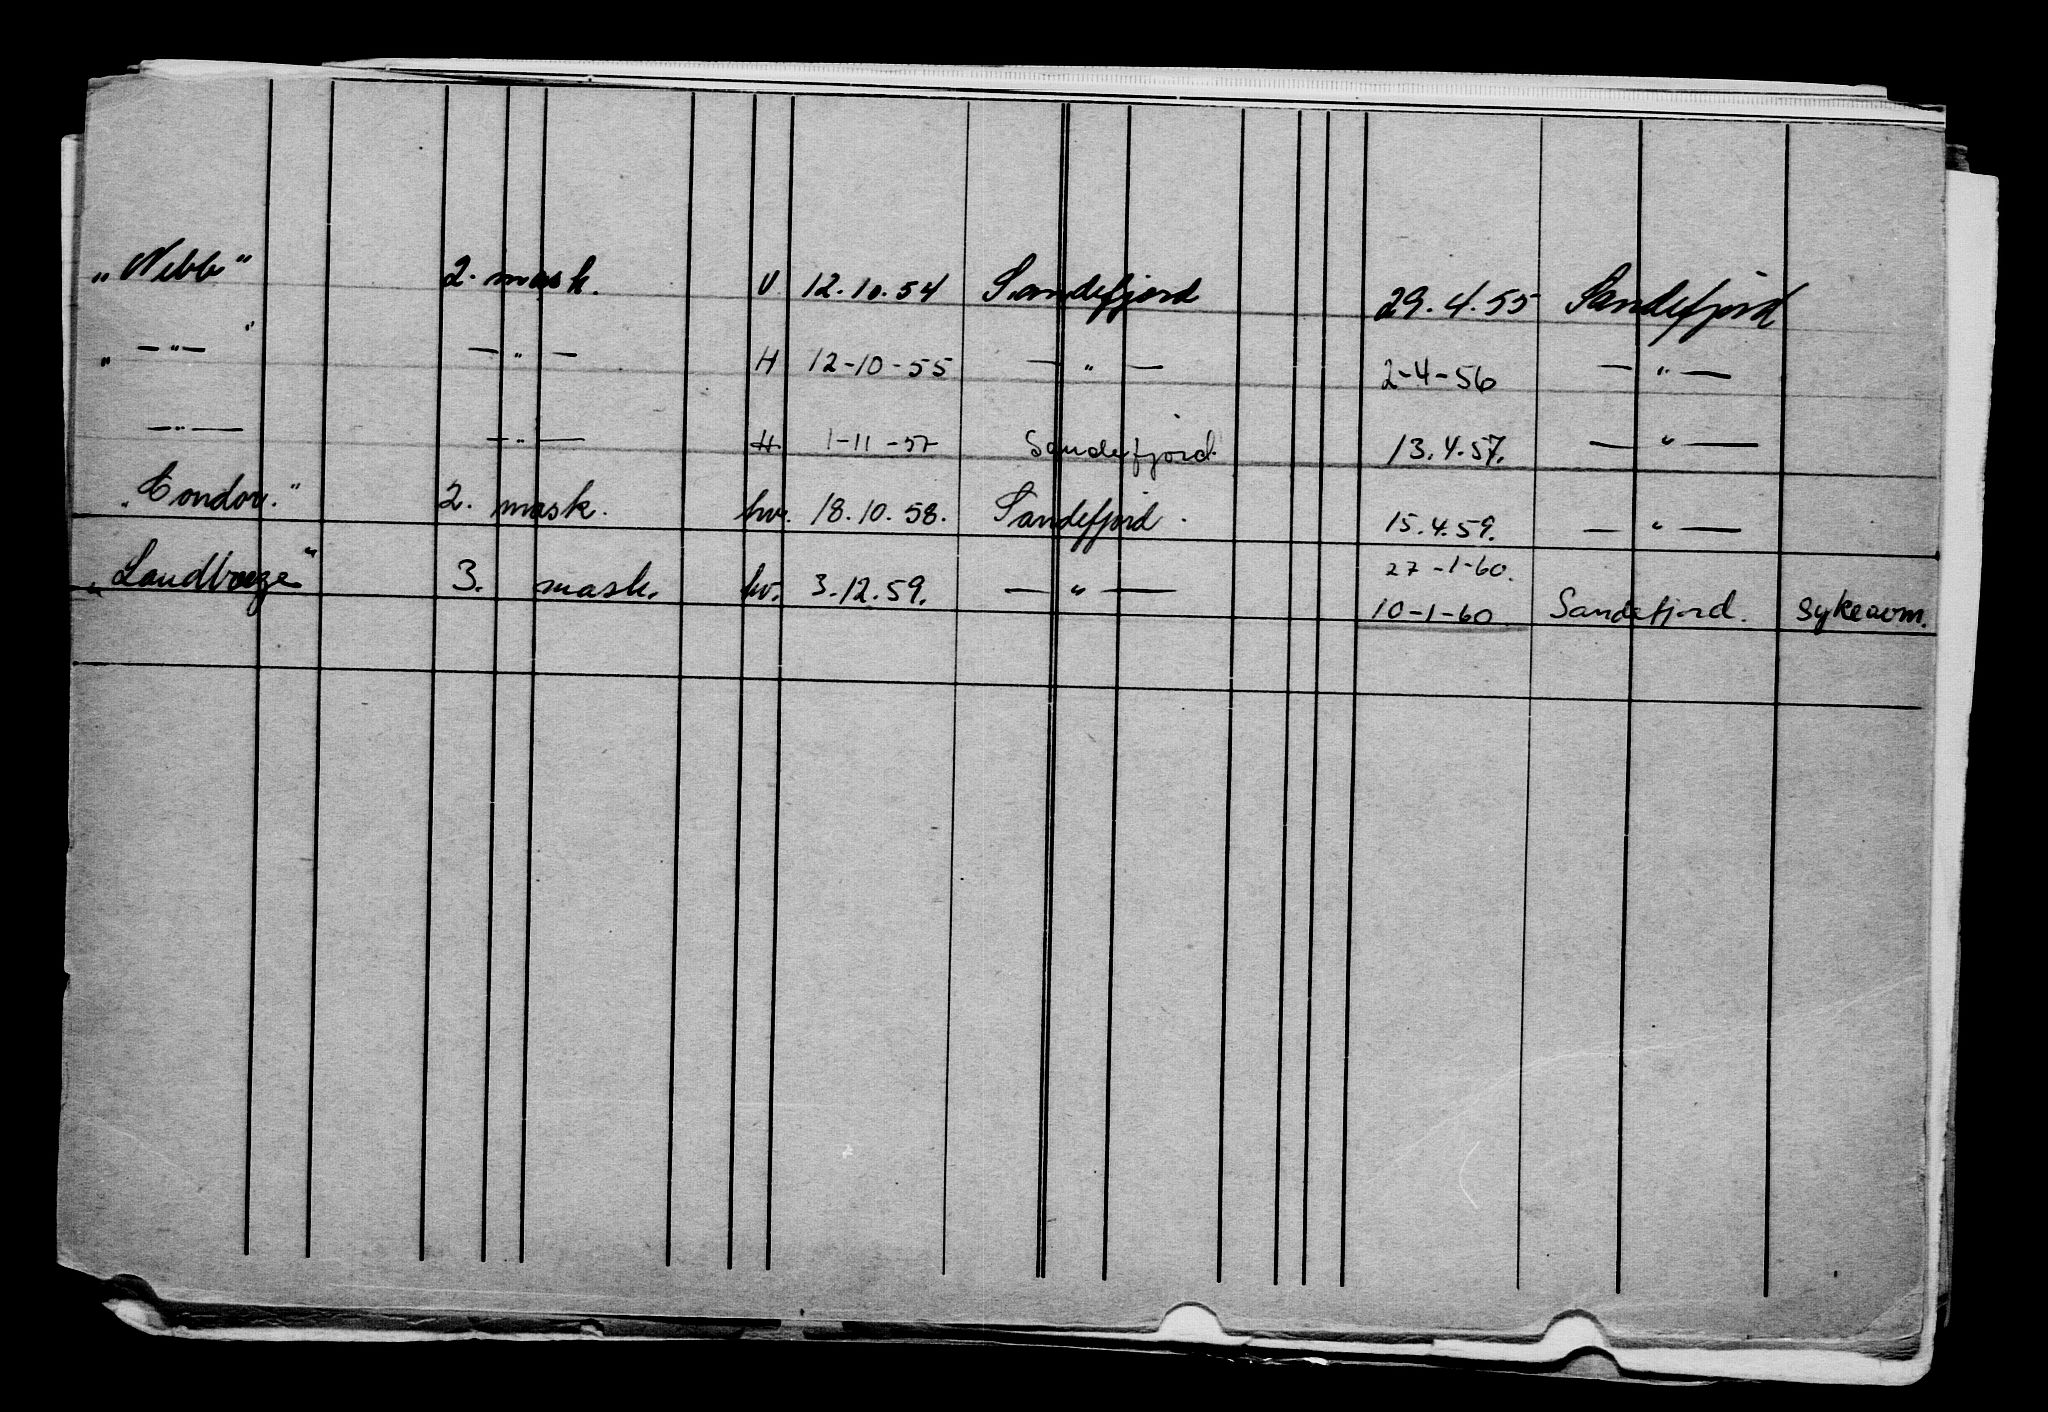 „Nebb" 2. mask. V. 12.10.54 Sandefjord 29.4.55 Sandefjord
„ —"— " —"— H 12-10-55 —"— 2-4-56 —"—
—"— —"— H 1-11-57 Sandefjord 13.4.57. —"—
„Condor." 2. mask. hv. 18.10.58. Sandefjord. 15.4.59. —"—
27-1-60.
„Landbreeze" 3. mask. hv. 3.12.59. —"— 10-1-60. Sandefjord. sykeavm.